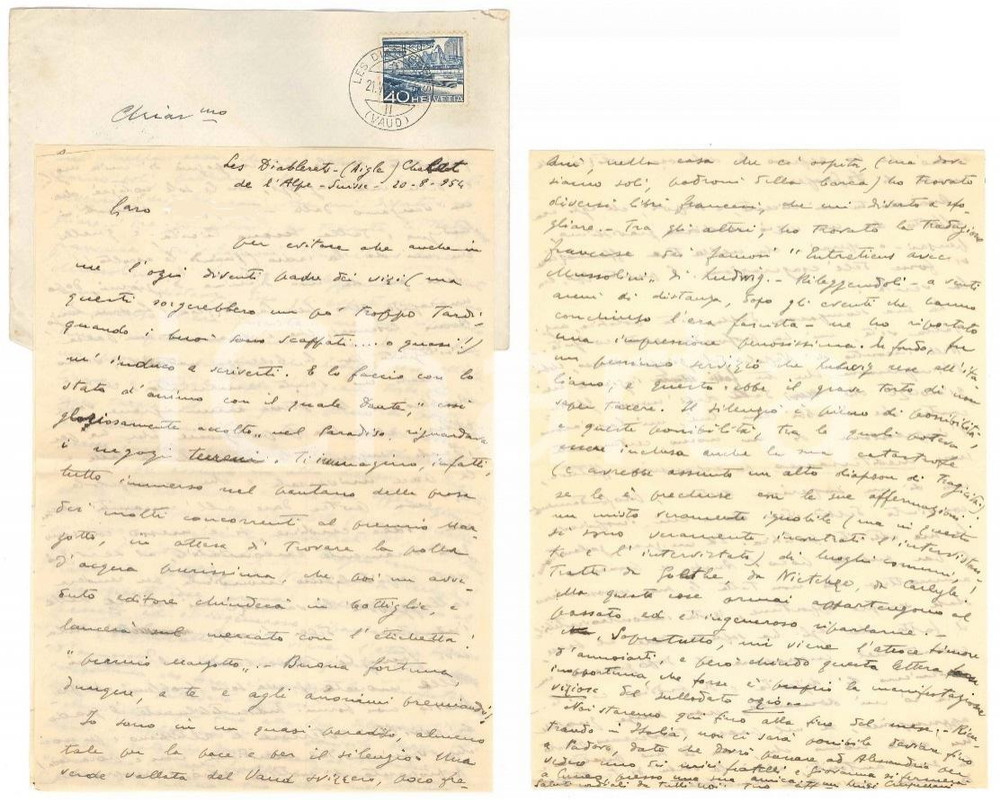 LES DIABLERETS
21.V
(VAUD)
40 HELVETIA
Chiar mo
Les Diablerets - (Aigle) Chalet
de l'Alpe - Suisse - 20-8-954
Caro
per evitare che anche in
me l'ozio diventi padre dei vizi (ma
questi sorgerebbero un po' troppo tardi:
quando i buoi sono scappati.... o quasi!)
m'induco a scriverti. E lo faccio con lo
stato d'animo con il quale Dante, "così
gloriosamente accolto" nel Paradiso riguardava
i negozi terreni. Ti immagino, infatti,
tutto immerso nel pantano della prosa
dei molti concorrenti al premio Mar-
zotto, in attesa di trovare la polla
d'acqua purissima, che poi un avve-
duto editore chiuderà in bottiglie e
lancerà sul mercato con l'etichetta:
"premio Marzotto". - Buona fortuna,
dunque, a te e agli anonimi premiandi!
Io sono in un quasi paradiso, almeno
tale per la pace e per il silenzio. Una
verde vallata del Vaud svizzero, poco fre-
Anzi, nella casa che ci ospita, (ma dove
siamo soli, padroni della barca) ho trovato
diversi libri francesi, che mi diverto a sfo-
gliare. - Tra gli altri, ho trovato la traduzione
francese dei famosi "Entretiens avec
Mussolini" di Ludwig. - Rileggendoli - a venti
anni di distanza, dopo gli eventi che hanno
conchiuso l'era fascista - ne ho riportato
una impressione penosissima. In fondo, fu
un pessimo servizio che Ludwig rese all'ita-
liano; e questo ebbe il grave torto di non
saper tacere. Il silenzio è pieno di possibilità,
e queste possibilità tra le quali poteva
essere inclusa anche la sua catastrofe
(e avrebbe assunto un alto diapason di tragicità)
se le è precluse con le sue affermazioni:
un misto veramente ignobile (ma in questo
si sono veramente incontrati l'intervista-
tore e l'intervistato) di luoghi comuni,
tratti da Goethe, da Nietche, da Carlyle!
Ma queste cose ormai appartengono al
passato ed è ingeneroso riparlarne. -
Soprattutto, mi viene l'atroce timore
d'annoiarti, e però chiudo questa lettera
inopportuna, che forse è proprio la manifestazione
viziosa del sullodato ozio. -
Noi staremo qui fino alla fine del mese. - Rien-
trando in Italia, non ci sarà possibile venire fino
a Padova, dato che dovrò passare ad Alessandria per
vedere uno dei miei fratelli e Giovanna si fermerà
a Cuneo presso una sua amica
saluti cordiali da tutti noi